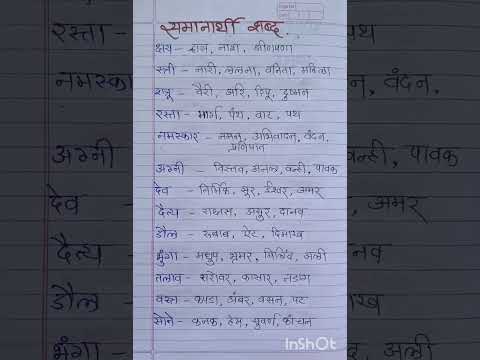 समानार्थी शब्द
क्षय - ऱ्हास, नाश, क्षीणपणा
स्त्री - नारी, ललना, वनिता, महिला
शत्रू - वैरी, अरि, रिपू, दुष्मन
रस्ता - मार्ग, पंथ, वाट, पथ
नमस्कार - नमन, अभिवादन, वंदन, प्रणिपात
अग्नी - विस्तव, अनल, वन्ही, पावक
देव - निर्मिक, सूर, ईश्वर, अमर
दैत्य - राक्षस, असुर, दानव
डौल - रूबाब, ऐट, दिमाख
भुंगा - मधुप, भ्रमर, मिलिंद, अली
तलाव - सरोवर, कासार, तडाग
वस्त्र - कपडा, अंबर, वसन, पट
सोने - कनक, हेम, सुवर्ण, कांचन
रस्ता
पथ
नमस्कार
वंदन,
अग्नी
वन्ही, पावक
देव -
अमर
दैत्य
दानव
डौल
भुंगा
अली
InShOt